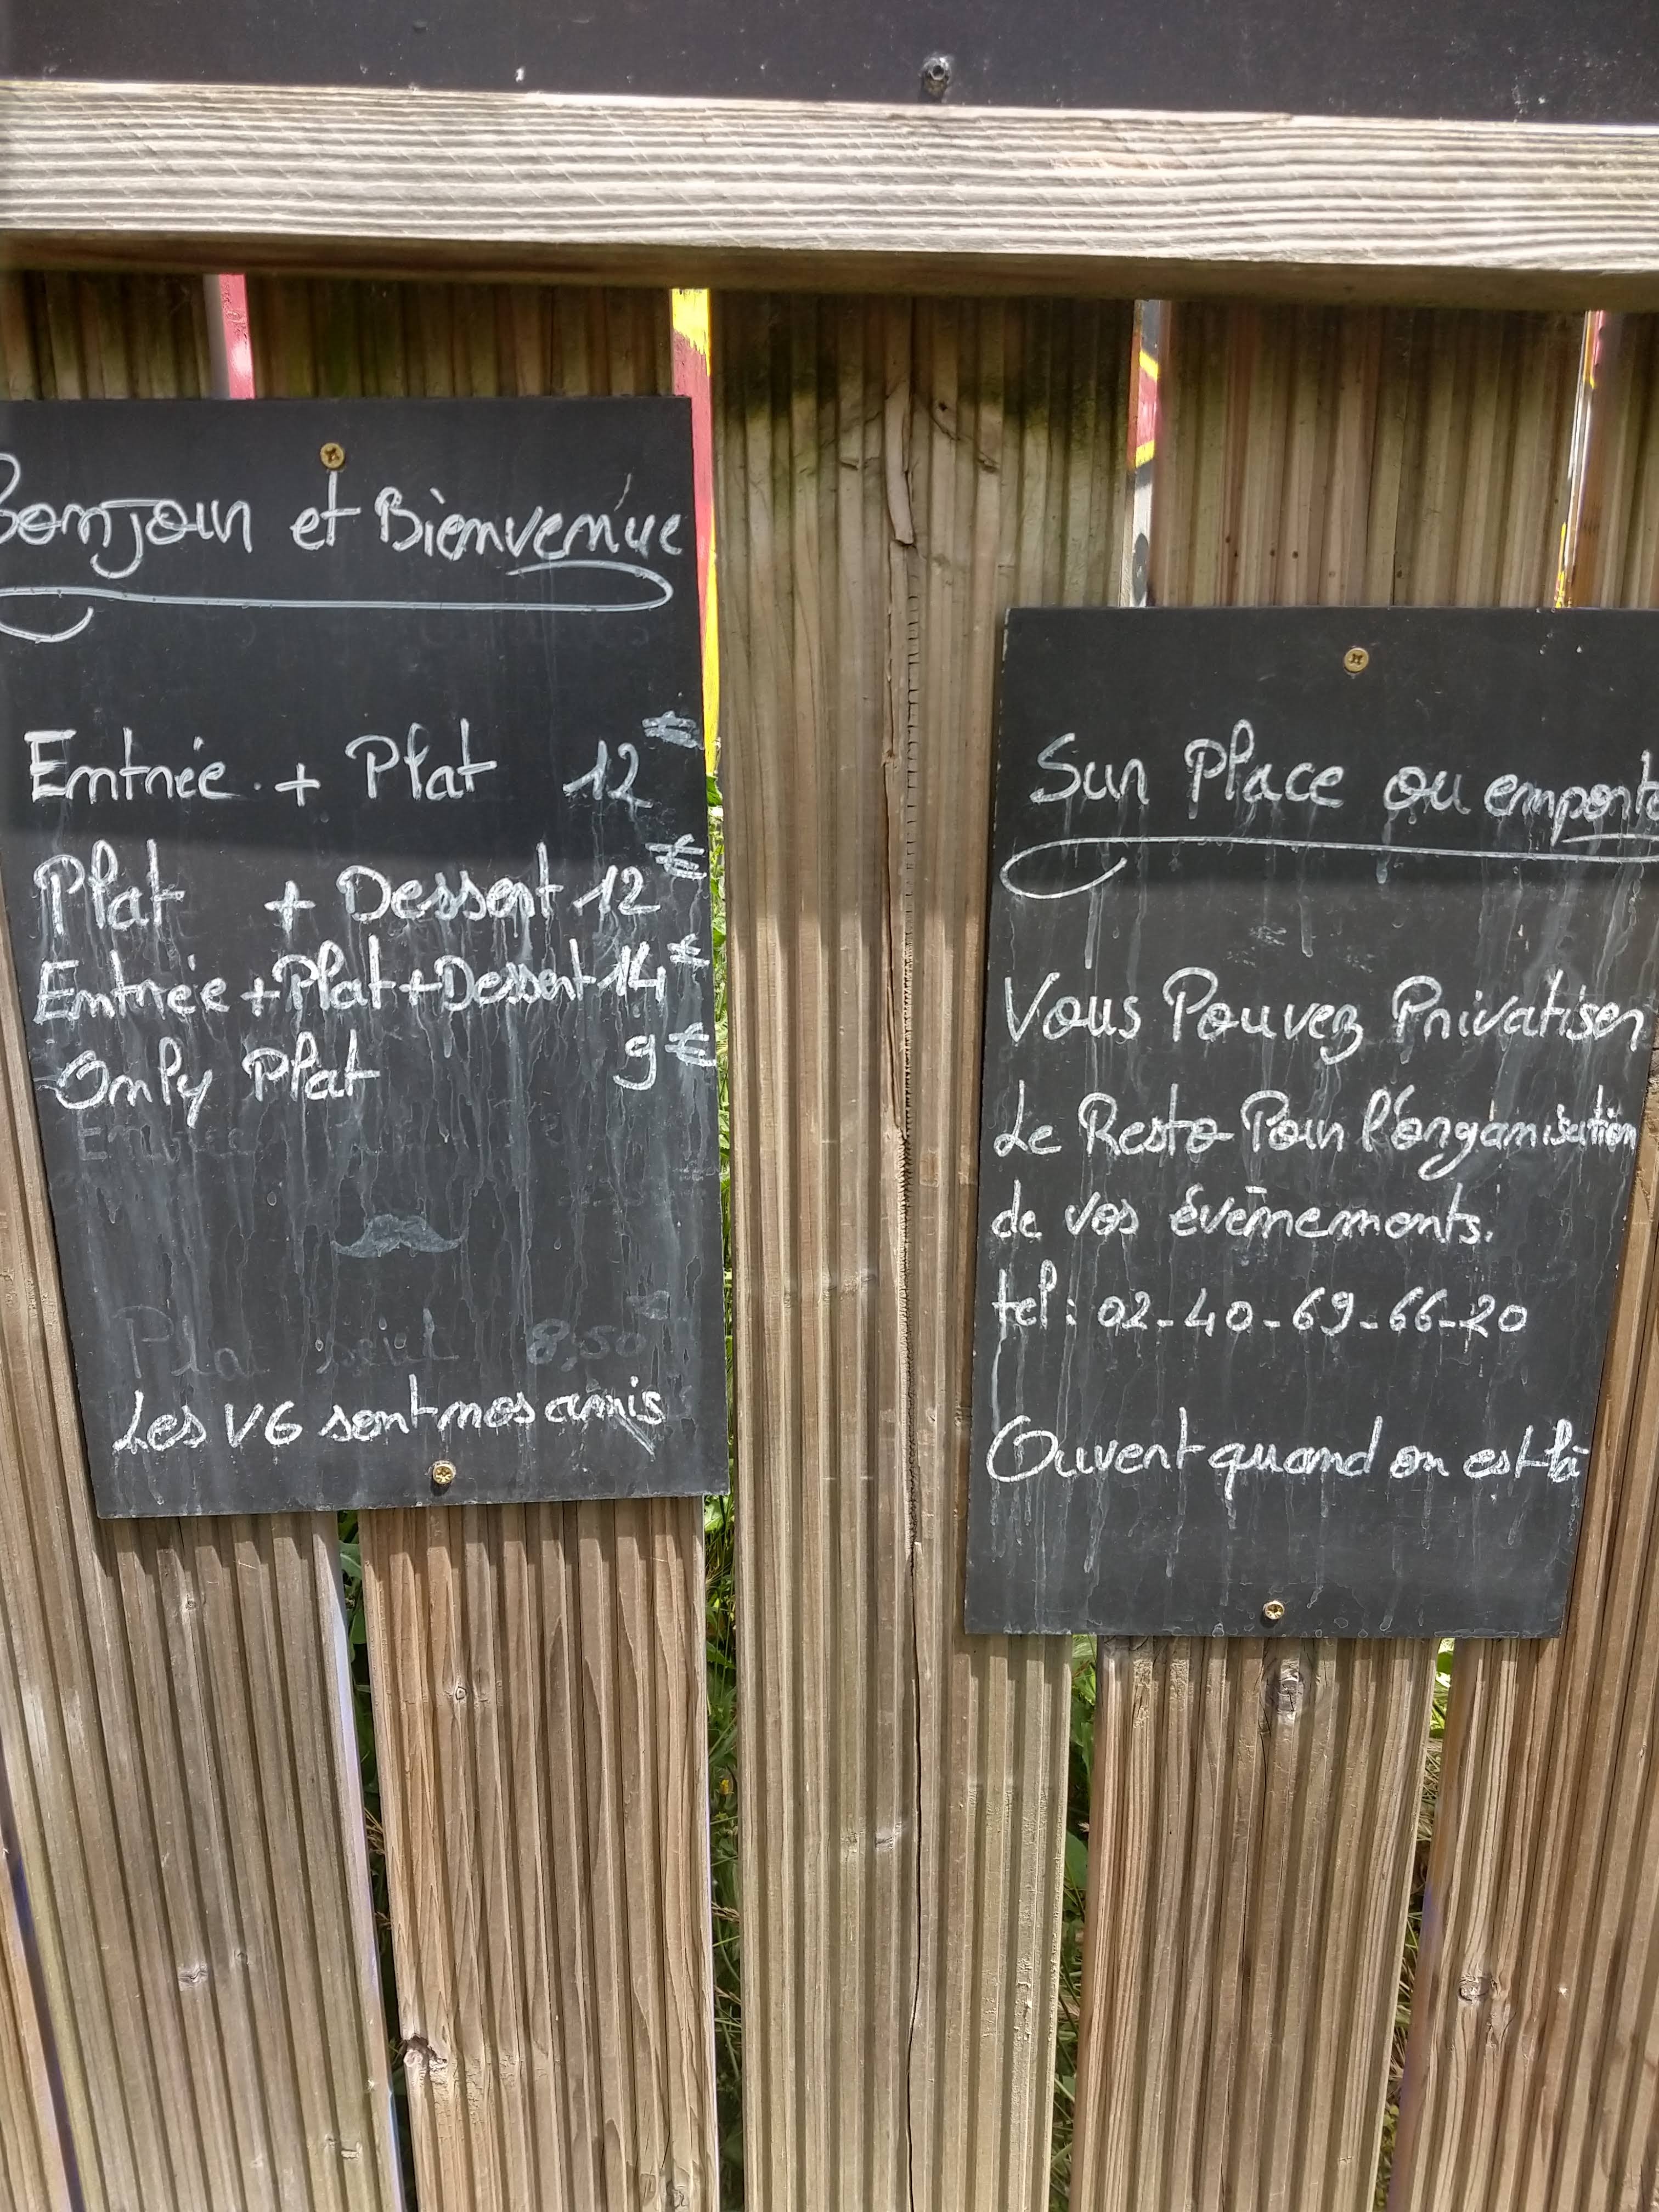 Bonjour et Bienvenue
Entrée + Plat 12€
Plat + Dessert 12€
Entrée + Plat + Dessert 14€
Only Plat 9€
Entrée
Plat seul 8,50
Les VG sont nos amis
Sur Place ou emporte
Vous Pouvez Privatiser
Le Resto Pour l'organisation
de vos évènements.
tel : 02-40-69-66-20
Ouvert quand on est là